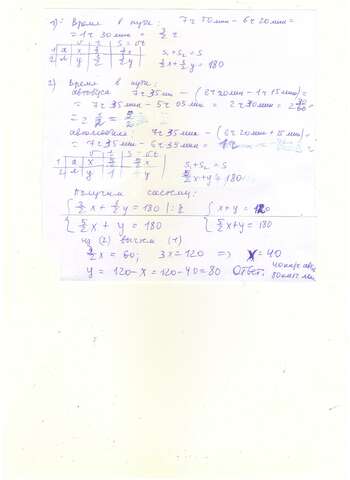 1) Время в пути: 7ч 50мин - 6ч 20мин =
= 1ч 30мин = 3/2 ч
v t S = vt
1 а x 3/2 3/2x
2 м y 3/2 3/2y
S₁ + S₂ = S
3/2x + 3/2y = 180
2) Время в пути:
автобуса 7ч 35мин - (6ч 20мин - 1ч 15мин) =
= 7ч 35мин - 5ч 05мин = 2ч 30мин = 2 30/60 =
= 2 1/2 = 5/2
автомобиля: 7ч 35мин - (6ч 20мин + 15мин) =
= 7ч 35мин - 6ч 35мин = 1ч
v t S vt
1 а x 5/2 5/2x
2 м y 1 y
S₁ + S₂ = S
5/2x + y = 180
Получим систему:
{ 3/2x + 3/2y = 180 |: 3/2 { x + y = 120
{ 5/2x + y = 180 { 5/2x + y = 180
из (2) вычтем (1)
3/2x = 60; 3x = 120 => x = 40
y = 120 - x = 120 - 40 = 80 Ответ: 40км/ч авт
80км/ч